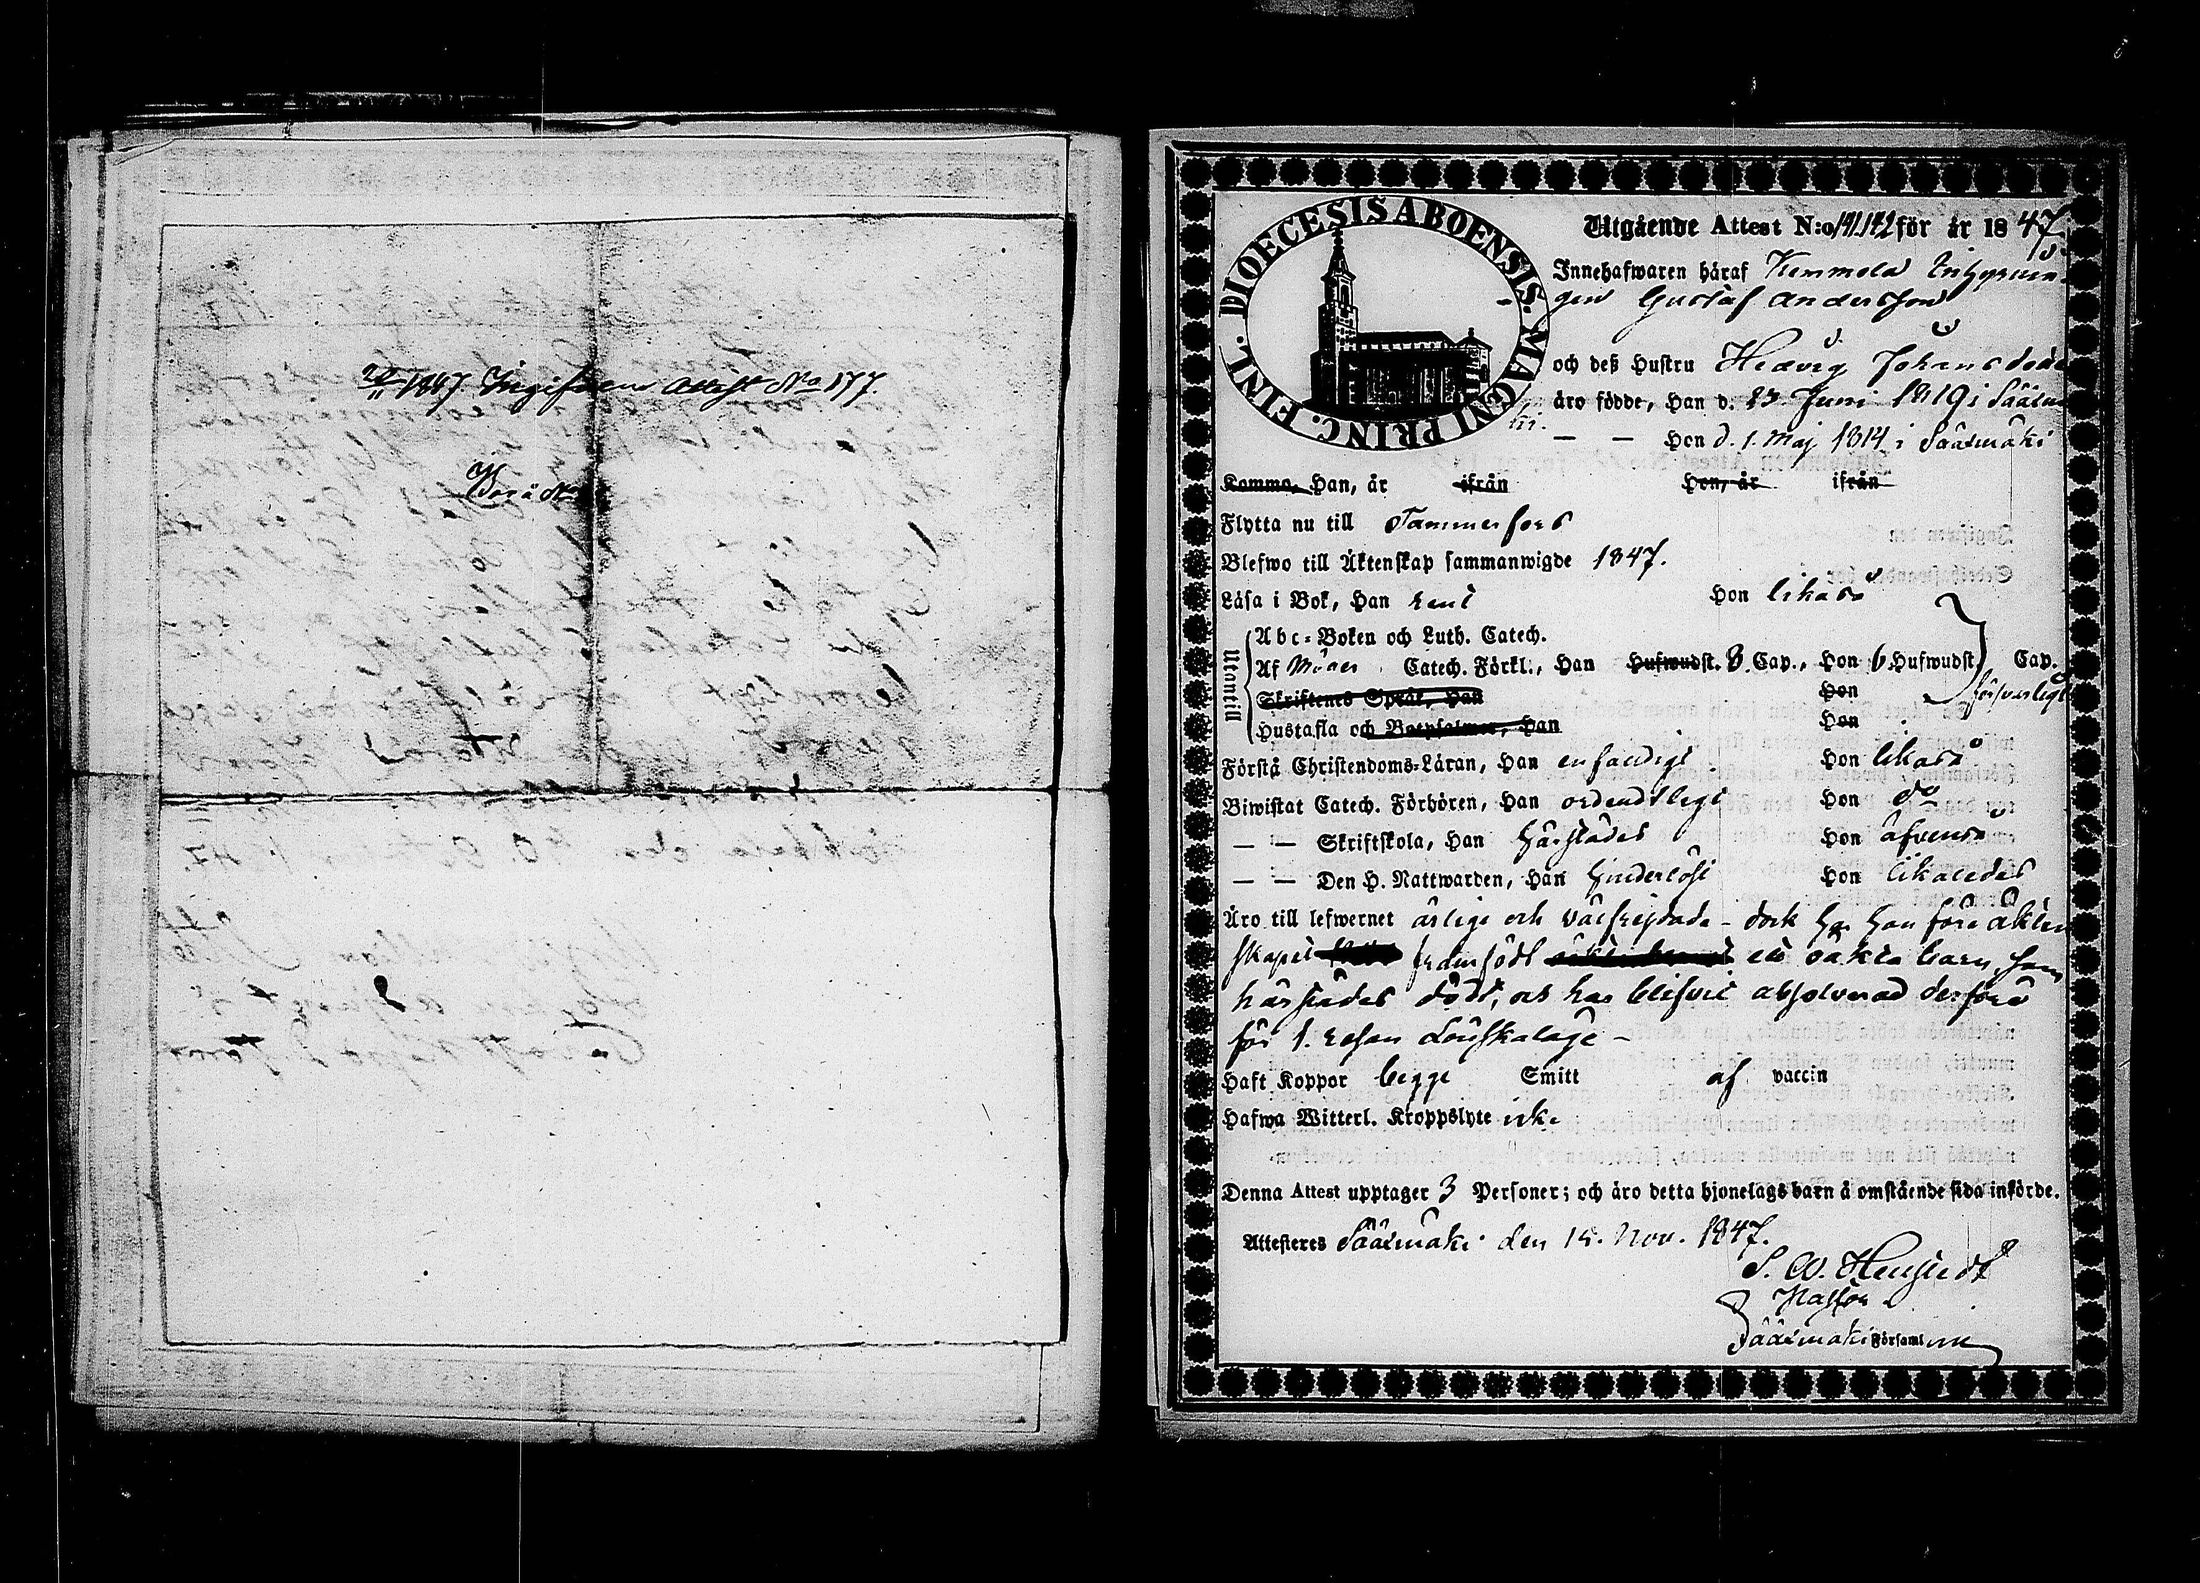 1847 Ingifven Attest No 177.
DIOECESIS ABOENSIS. MAGNI PRINC. FINL.
Utgående Attest N:o 141.142 för år 1847
Innehafwaren häraf Kemmola Inhysnin-
gen Gustaf Andersson
och deß Hustru Hedvig Johansdotr
äro födde, Han d. 23 Juni 1819 i Sääxmä-
ki.
— — Hon d. 1. Maj 1814 i Sääxmäki
Komme, Han, år ifrån Hon, år ifrån
Flytta nu till Tammerfors
Blefwo till Äktenskap sammanwigde 1847.
Läsa i Bok, Han rent Hon likaså
Utantill
Abc-Boken och Luth. Catech.
Af Möners Catech. Förkl., Han Hufwudst. 3 Cap., Hon 6 Hufwudst. Cap.
Skriftenes Språk, Han Hon försvarligt
Hustafla och Botpsalmer, Han Hon
Förstå Christendoms-Läran, Han enfaldigt Hon likaså
Biwistat Catech. Förhören, Han ordentligt Hon do
— — Skriftskola, Han härstädes Hon äfvenså
— — Den H. Nattwarden, Han hinderlöst Hon likaledes
Äro till lefwernet ärlige och välfrejdade – dock har hon före äkten
skapet framfödt ett oäkta barn, som
härstädes dödt, och har blifvit absolverad derföre
för 1. resan Lönskaläge –
Haft Koppor begge Smitt af vaccin
Hafwa Witterl. Kroppslyte icke
Denna Attest upptager 3 Personer; och äro detta hjonelags barn å omstående sida införde.
Attesteres Sääxmäki den 15. Nov. 1847.
Pastor
Sääxmäki Församl